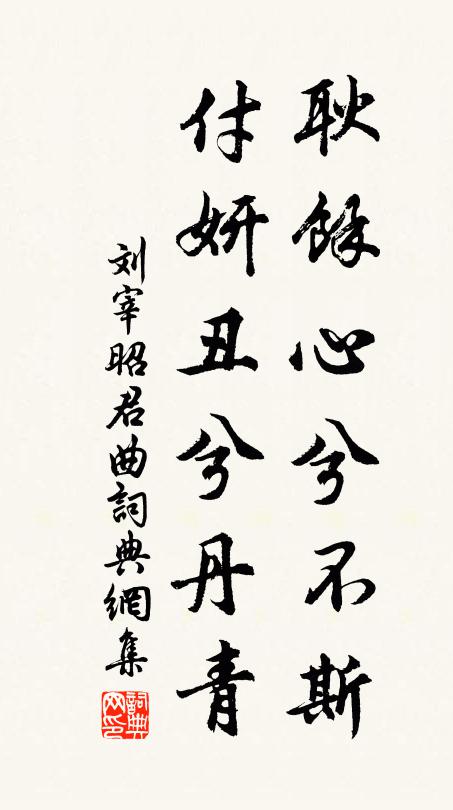 耿餘心兮不斯
付妍丑兮丹青
刘宰昭君曲詞典網集
詞典网印